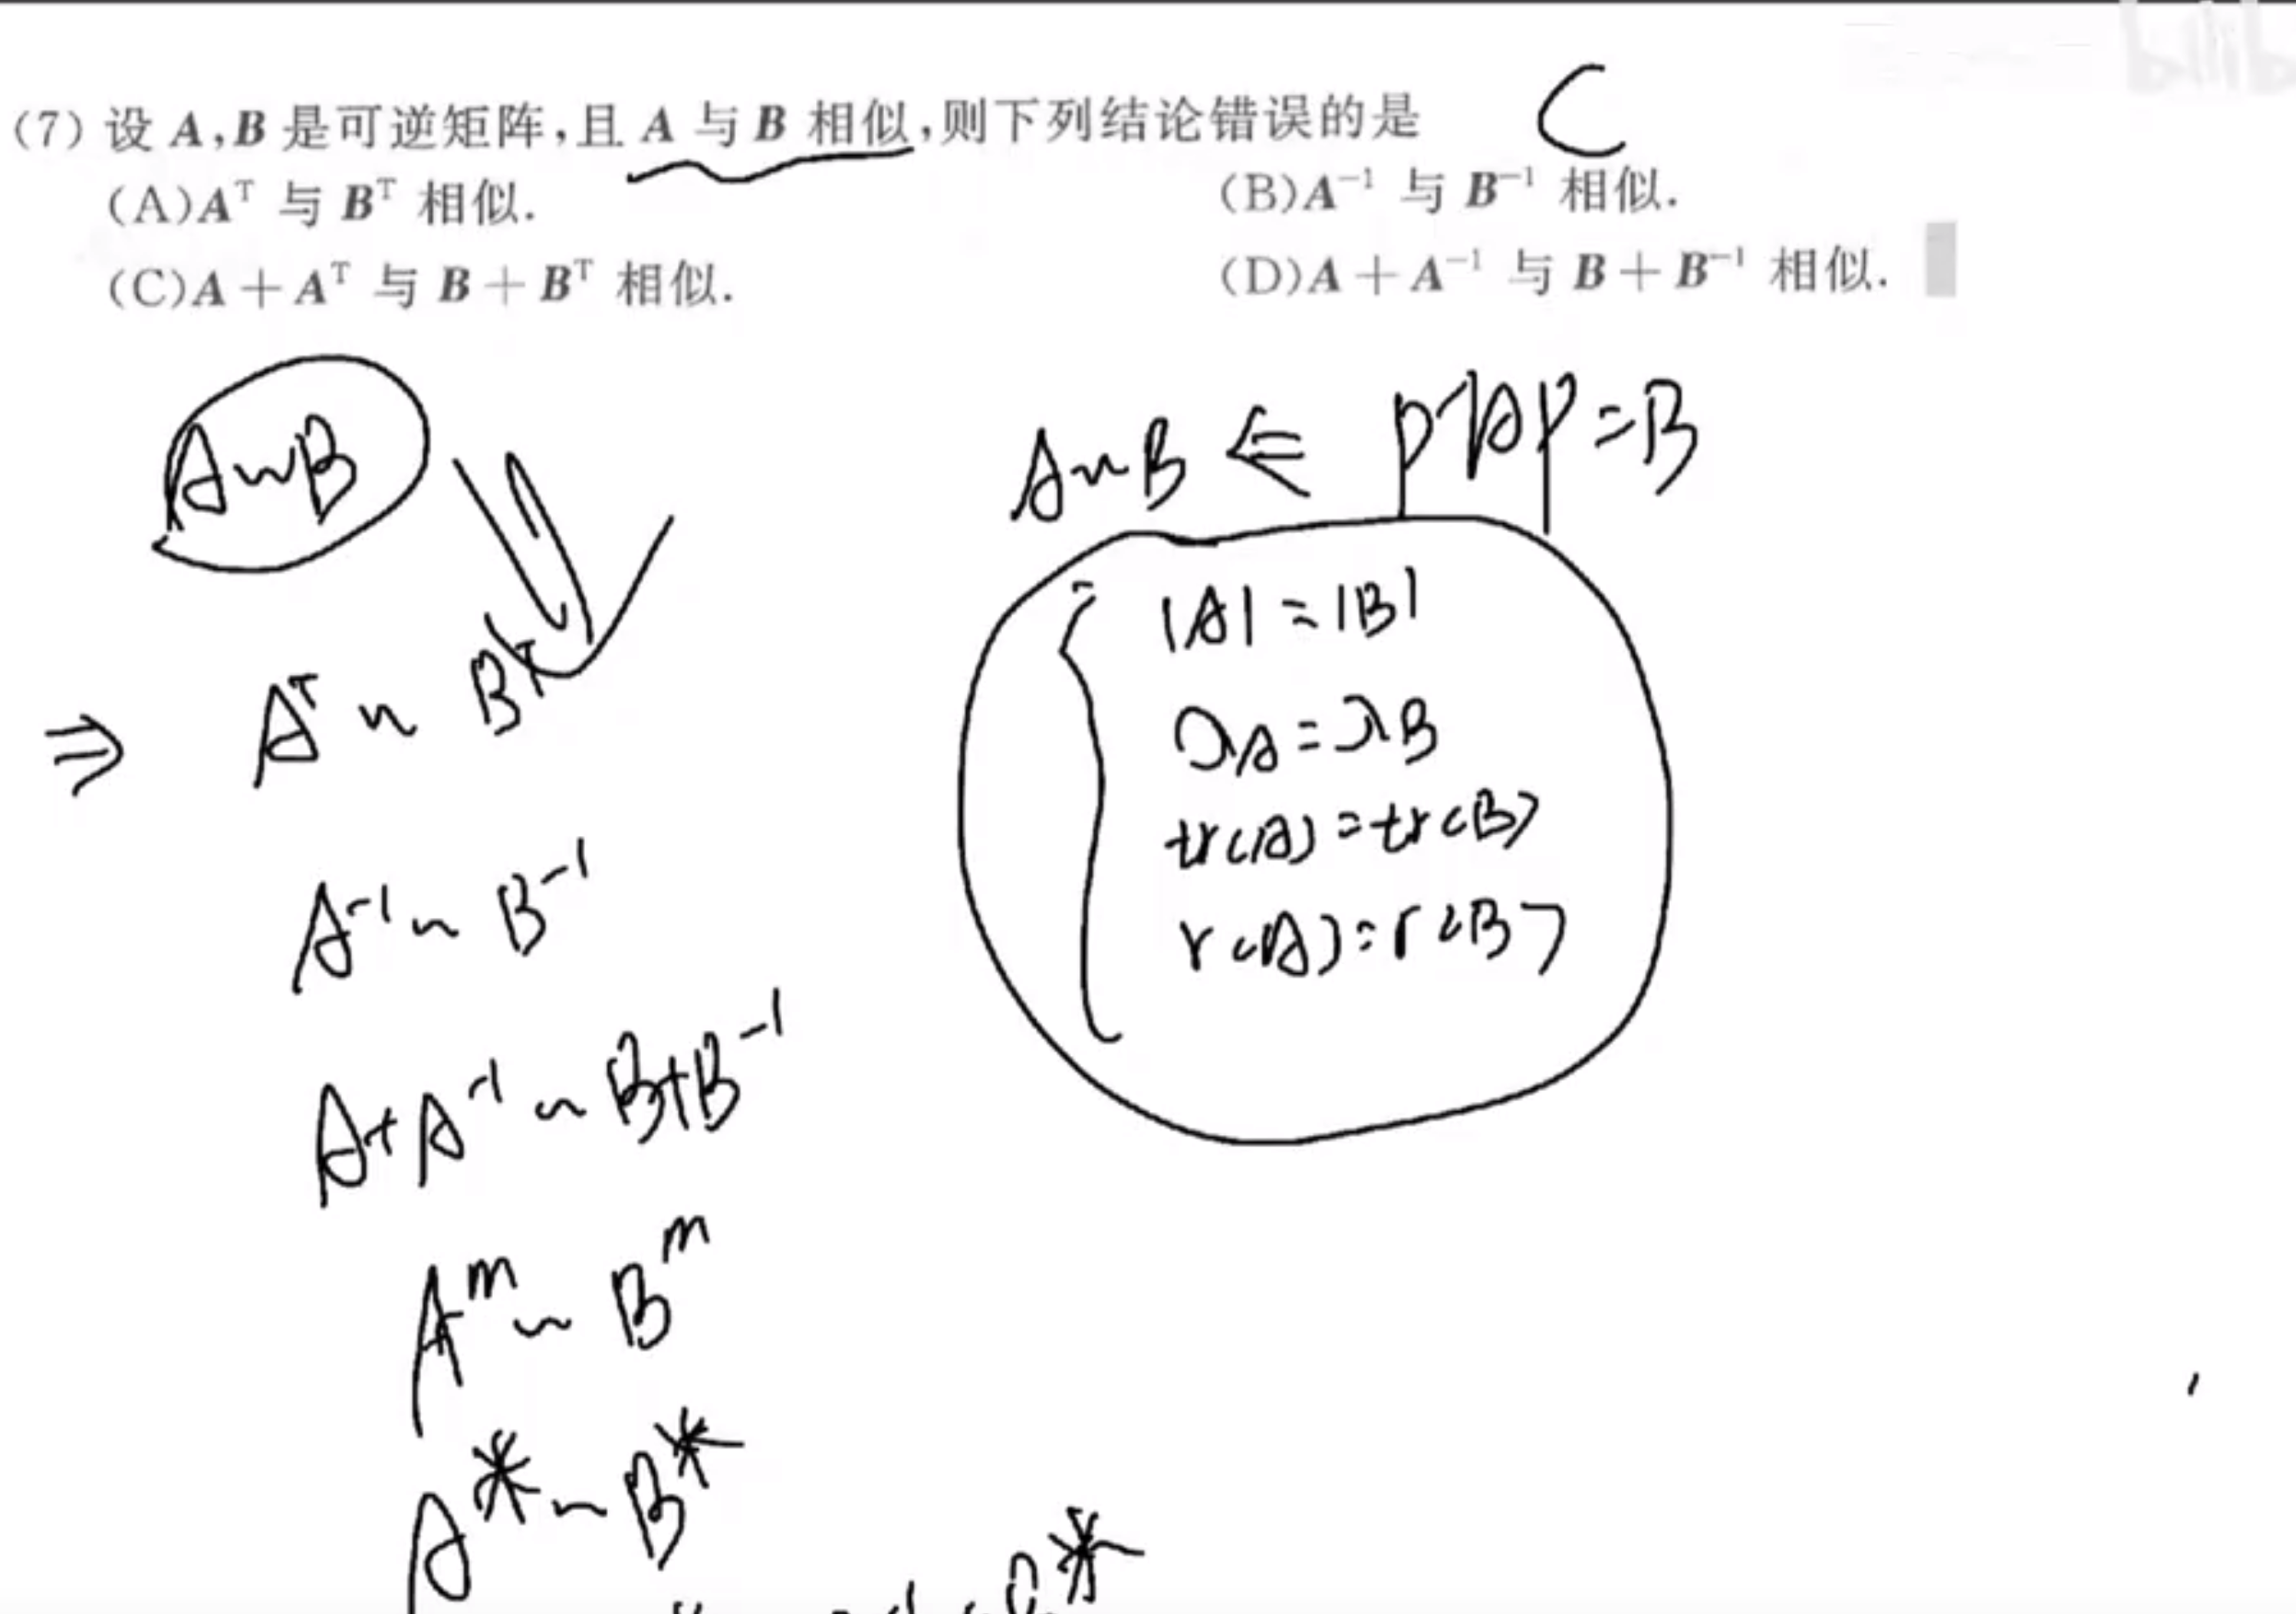 (7) 设 A,B 是可逆矩阵,且 A 与 B 相似,则下列结论错误的是 C
(A)Aᵀ 与 Bᵀ 相似. (B)A⁻¹ 与 B⁻¹ 相似.
(C)A+Aᵀ 与 B+Bᵀ 相似. (D)A+A⁻¹ 与 B+B⁻¹ 相似.
A~B
⇒ Aᵀ ~ Bᵀ
A⁻¹ ~ B⁻¹
A+A⁻¹ ~ B+B⁻¹
Aᵐ ~ Bᵐ
A* ~ B*
A~B ⇐ P⁻¹AP=B
|A|=|B|
λA=λB
tr(A)=tr(B)
r(A)=r(B)